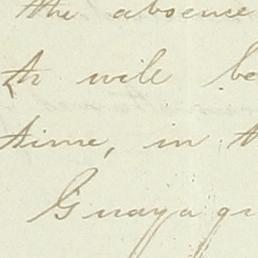 the absence
it will be
time, in t
Guayaqu